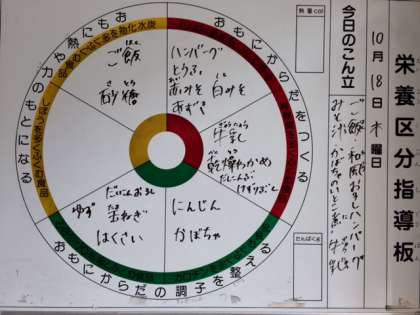 栄養区分指導板
10月18日 木曜日
今日のこん立
ご飯・和風おろしハンバーグ
みそ汁・かぼちゃのいとこ煮・牛乳
熱量cal
たんぱく g
おもにからだをつくる
ハンバーグ
とうふ
赤みそ 白みそ
あずき
ぎゅうにゅう
牛乳
かんそう
乾燥わかめ
だしこんぶ
けずりぶし
おもにからだの調子を整える
にんじん
かぼちゃ
だいこんおろし
ゆず
葉ねぎ
はくさい
おもに熱や力のもとになる
ご飯
はん
さとう
砂糖